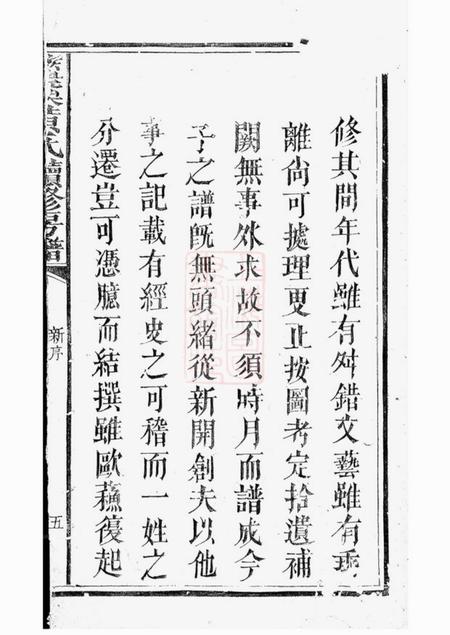 修其間年代雖有舛錯文藝雖有乖
離尙可據理更止按圖考定拾遺補
闕無事外求故不須時月而譜成今
子之譜旣無頭緒從新開創夫以他
事之記載有經史之可稽而一姓之
分遷豈可憑臆而結撰雖歐蘇復起
黃氏續修房譜
新序
五